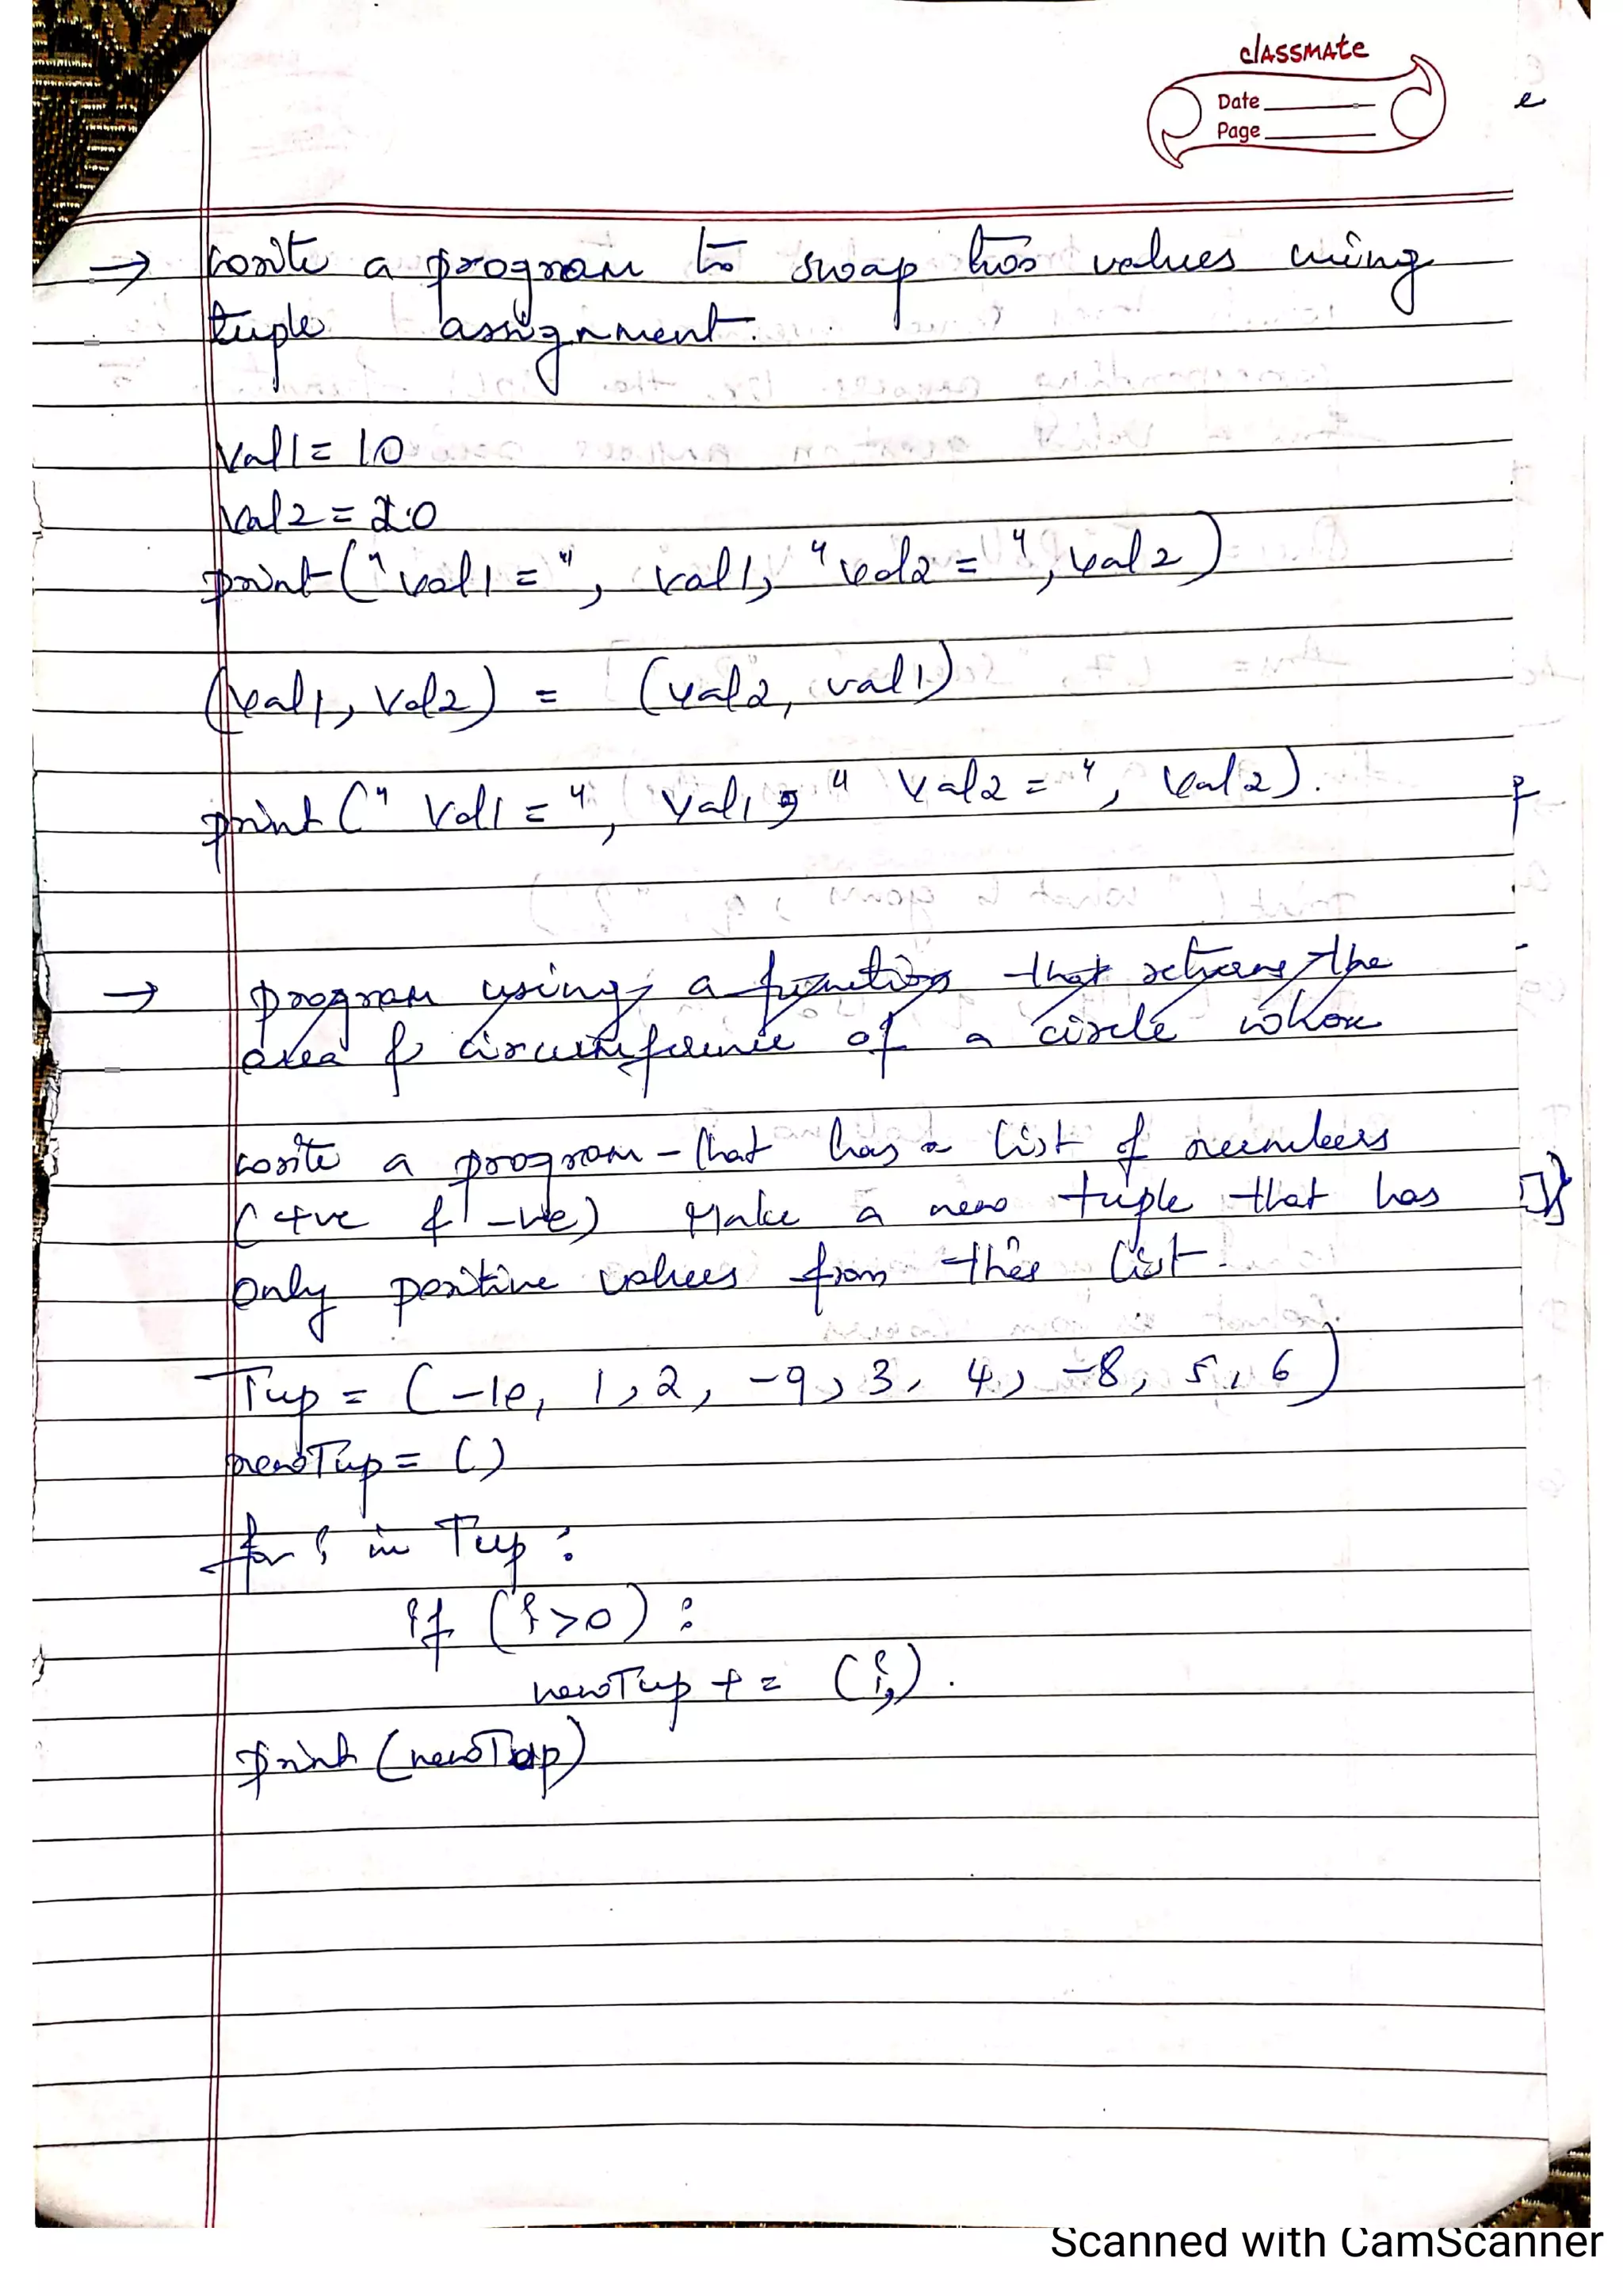 classmate
Date
Page
→ write a program to swap two values using
tuple assignment.
val1 = 10
val2 = 20
print("val1 =", val1, "val2 = ", val2)
(val1, val2) = (val2, val1)
print (" val1 = ", val1, " val2 = ", val2).
→ program using a function that returns the
area & circumference of a circle whose
write a program that has a list of numbers
(+ve & -ve) Make a new tuple that has
only positive values from this list.
Tup = (-10, 1, 2, -9, 3, 4, -8, 5, 6)
newTup = ()
for i in Tup :
if (i>0) :
newTup += (i,).
print (newTup)
Scanned with CamScanner